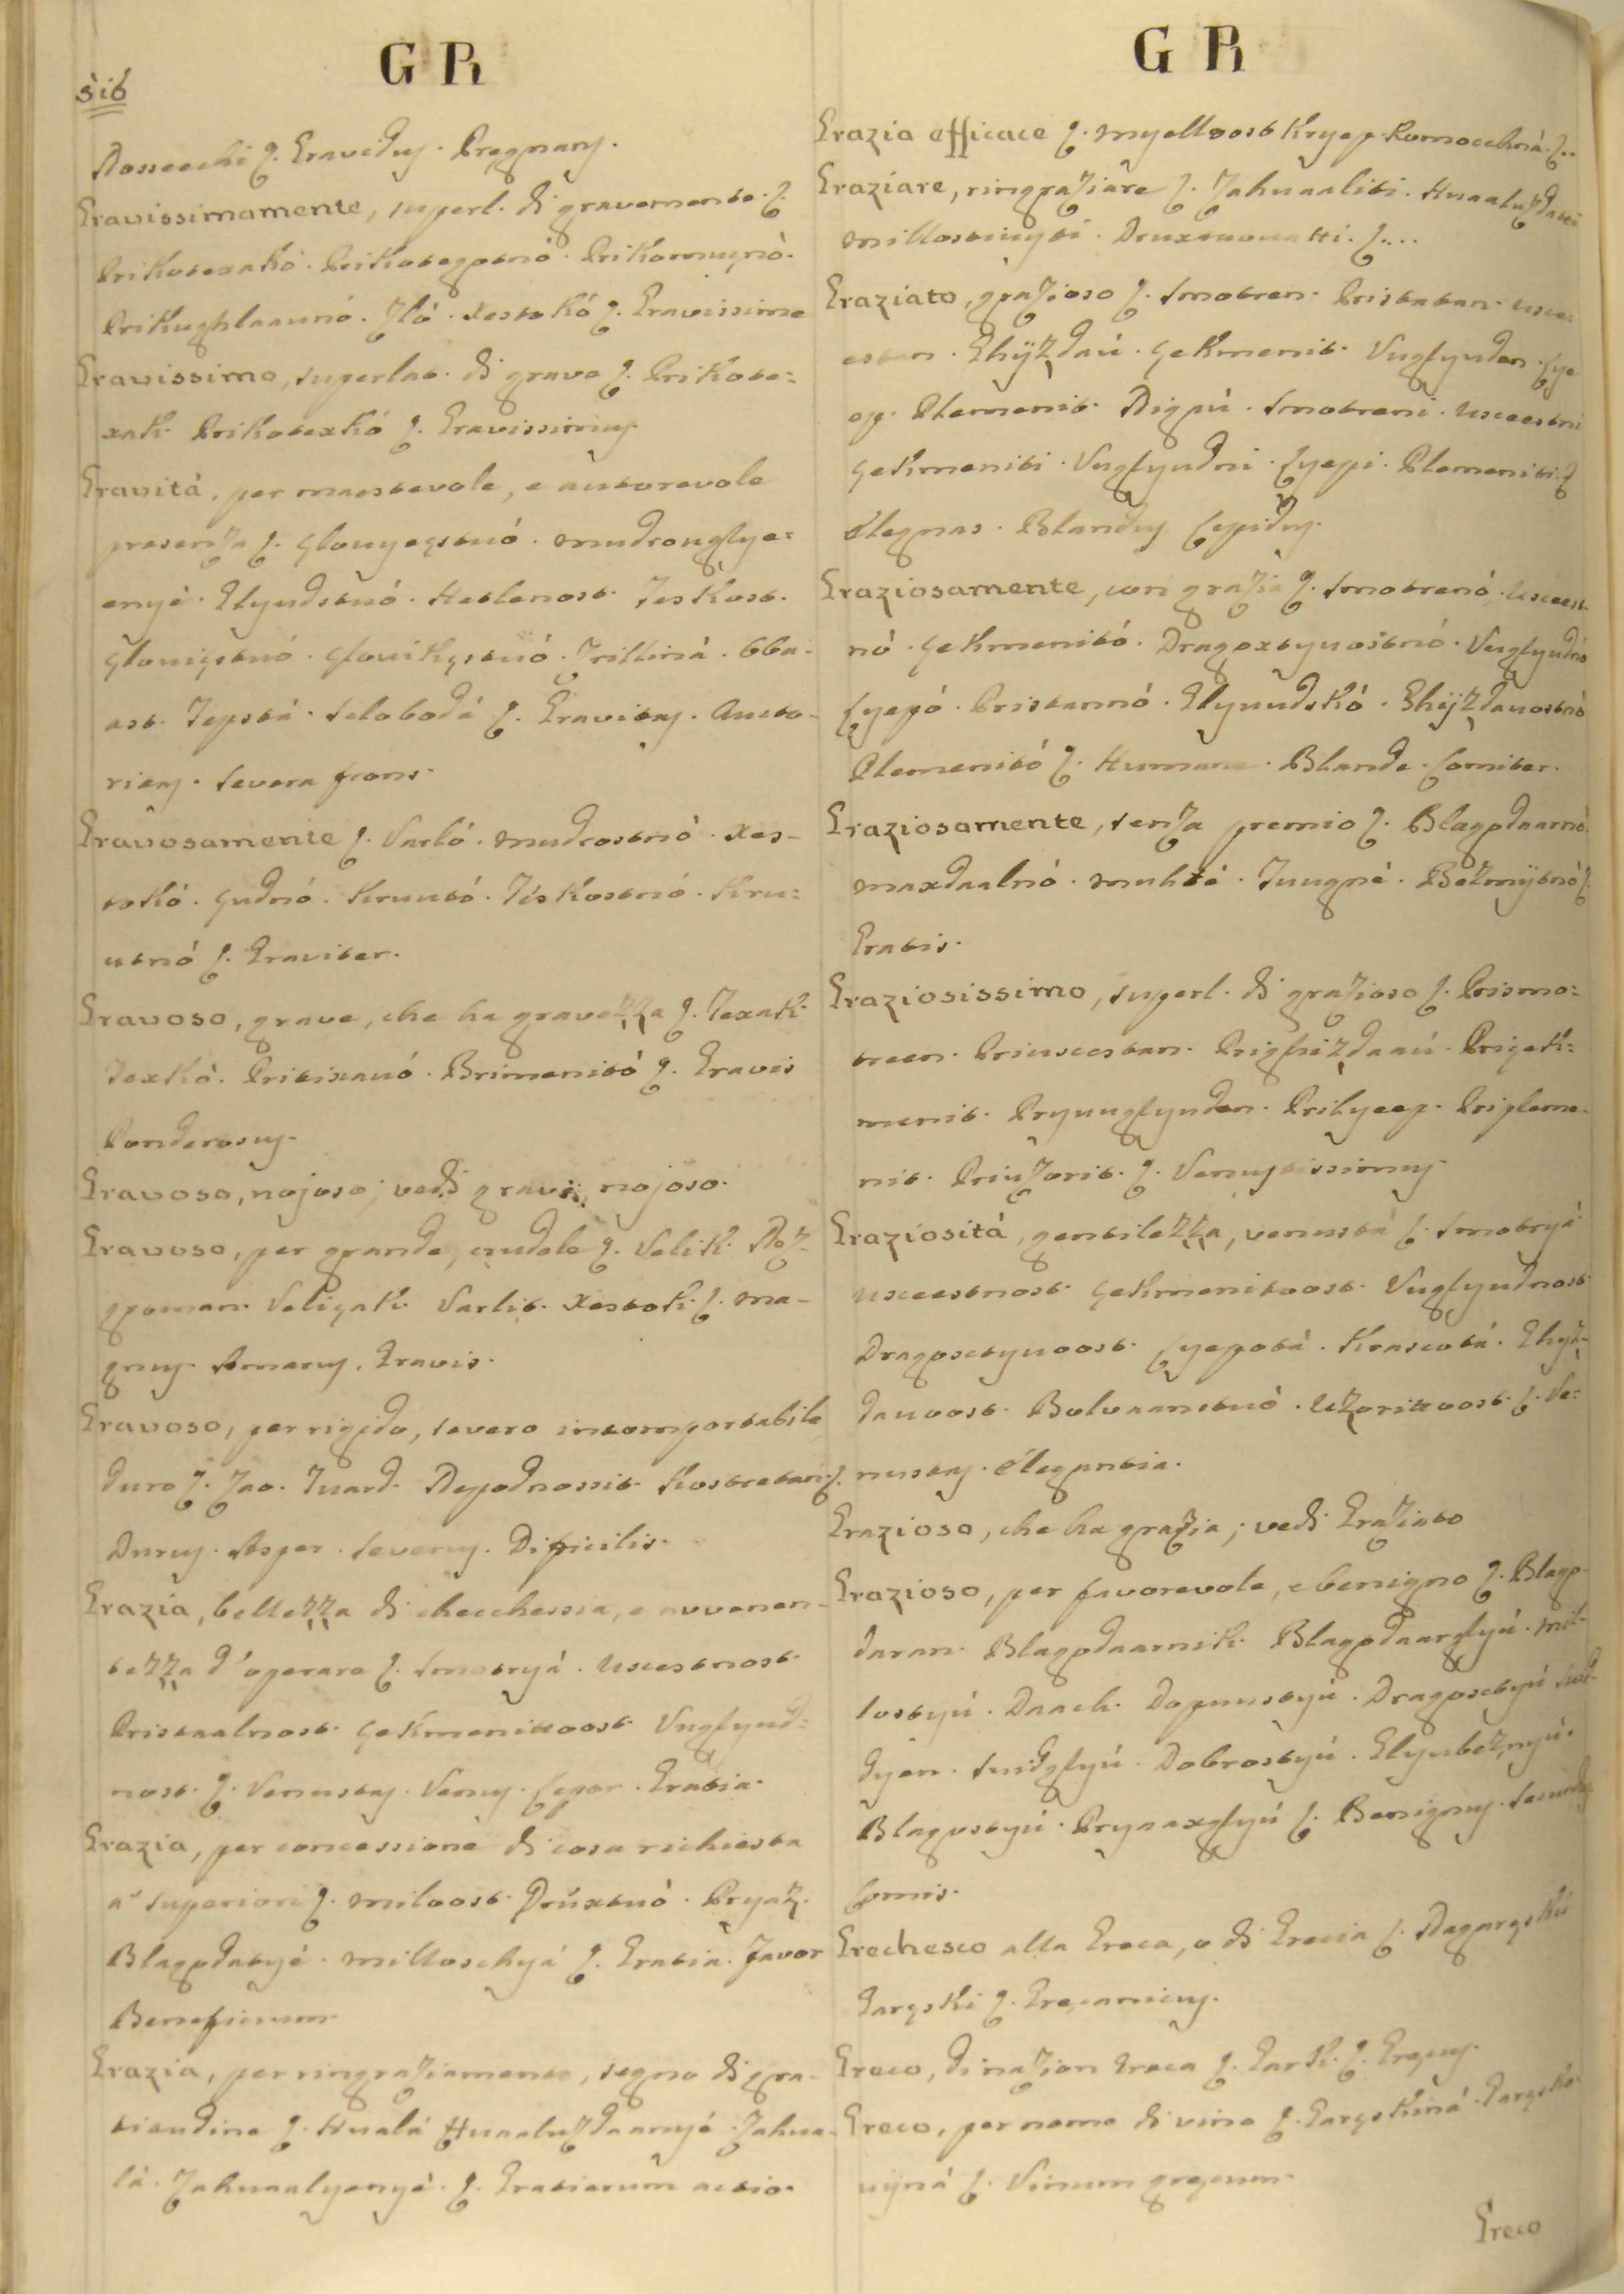 G R
516
Nossechi ꝭ. Gravidus. Prægnans.
Gravissimamente, superl. di gravemente. ꝭ.
Prikotexakó. Prikotegotnó. Prikormugnó.
Prikughlaaunó. Zló. xestokó ꝭ. Gravissime
Gravissimo, superlat. di grave ꝭ. Prikote=
xak. Prikotexkó ꝭ. Gravissimus.
Gravitá, per maestevole, e autorevole
presenza ꝭ. çlouyeçstuó. mudrouglye=
enyé. Glyudstuó. Hetlenost. Teskost.
çlouiçstuó. çlouikçstuó. Trillinà. Oba-
ast. Tepstá. selobodá ꝭ. Gravitas. Aucto-
ritas. severa frons.
Gravosamente ꝭ. Varló. mudrostnó. xes-
tokó. çudnó. kruutó. Teskostnó. kru=
utnó ꝭ. Graviter.
Gravoso, grave, che ha gravezza ꝭ. Texak.
Texkó. Pritixauó. Brimenitó ꝭ. Gravis
Ponderosus.
Gravoso, nojoso; vedi grave, nojoso.
Gravoso, per grande, crudele ꝭ. Velik. Noz-
groman. Veliçak. Varlit. xestok. ꝭ. ma-
gnus. Amarus. Gravis.
Gravoso, per rigido, severo incomportabile
duro ꝭ. Zao. Tuard. Nepodnossit. kostretan. ꝭ.
Durus. Asper. severus. Difficilis.
Grazia, bellezza di checchessia, e avvenen-
tezza d'operare ꝭ. smotryá. uscestnost.
Pristaalnost. çekmenittoost. Vuglyud=
nost. ꝭ. Venustas. Venus. Lepor. Gratia.
Grazia, per concessione di cosa richiesta
a' superiori ꝭ. miloost. Drúxtuò. Pryaz.
Blagodatyé. milloschyá ꝭ. Gratia. Favor
Beneficium.
Grazia, per ringraziamento, segno di gra-
titudine ꝭ. Hualá Huaaluzdaanyé. Zahua-
lá. Zahuaalyenyé. ꝭ. Gratiarum actio.
G R
Grazia efficace ꝭ. myelloost kryep. Pomocchná. ꝭ..
Graziare, ringraziare ꝭ. Zahuaaliti. Huaaluzdatti
millostiuyti. Druxeuouatti. ꝭ....
Graziato, grazioso ꝭ. smotren. Pristatan. usce=
estan. Ghÿzdaú. çekmenit. Vuglyudan. Lye
ep. Plemenit. Nigpú. smotreni. usceestni
çekmeniti. Vuglyudni. Lyepi. Plemeniti. ꝭ
élegnas. Blandus Lepidus.
Graziosamente, con grazia ꝭ. smotrenó. Usceest-
nó. çekmenitó. Dragoxtyuostnó. Vuglyudnó
Lyepó. Pristannó. Glyuudskó. Ghÿzdauostnó
Plemenitó ꝭ. Humane. Blande. Comiter.
Graziosamente, senza premio ꝭ. Blagodaarnó.
maxdaalnó. muhté. Tuugné. Bezmÿtnó ꝭ.
Gratis.
Graziosissimo, superl. di grazioso ꝭ. Prismo=
treen. Priuscestan. Prighizdaaú. Priçek=
menit. Pryuuglyudan. Prilyeep. Pripleme-
nit. Priuzorit. ꝭ. Venustissimus.
Graziositá, gentilezza, venustá ꝭ. smotryá
usceestnost. çekmenitoost. Vuglyudnost.
Dragosctyuoost. Lyepotá. Krascotá. Ghyz-
dauoost. Boluaanstuó. Uzorittoost. ꝭ. Ve=
nustas. élegantia.
Grazioso, che ha grazia; vedi Graziato
Grazioso, per favorevole, e benigno ꝭ. Blago-
daran. Blagodaarnik. Blagodaarglyú. mil-
lostyú. Daach. Dopuustyú. Dragosctyú
dyen. snidglyú. Dobrostyú. Glyubeznyú.
Blagostyú. Pryaaxglyú ꝭ. Benignus. secundus
Comis.
Grechesco alla Greca, o di Grecia ꝭ. Nagarçskú
Garçski ꝭ. Græcanicus.
Greco, di nazion Greca ꝭ. Gark. ꝭ. Græcus.
Greco, per nome di vino ꝭ. Garçskiná. Garçsko
uÿná ꝭ. Vinum græcum.
Greco